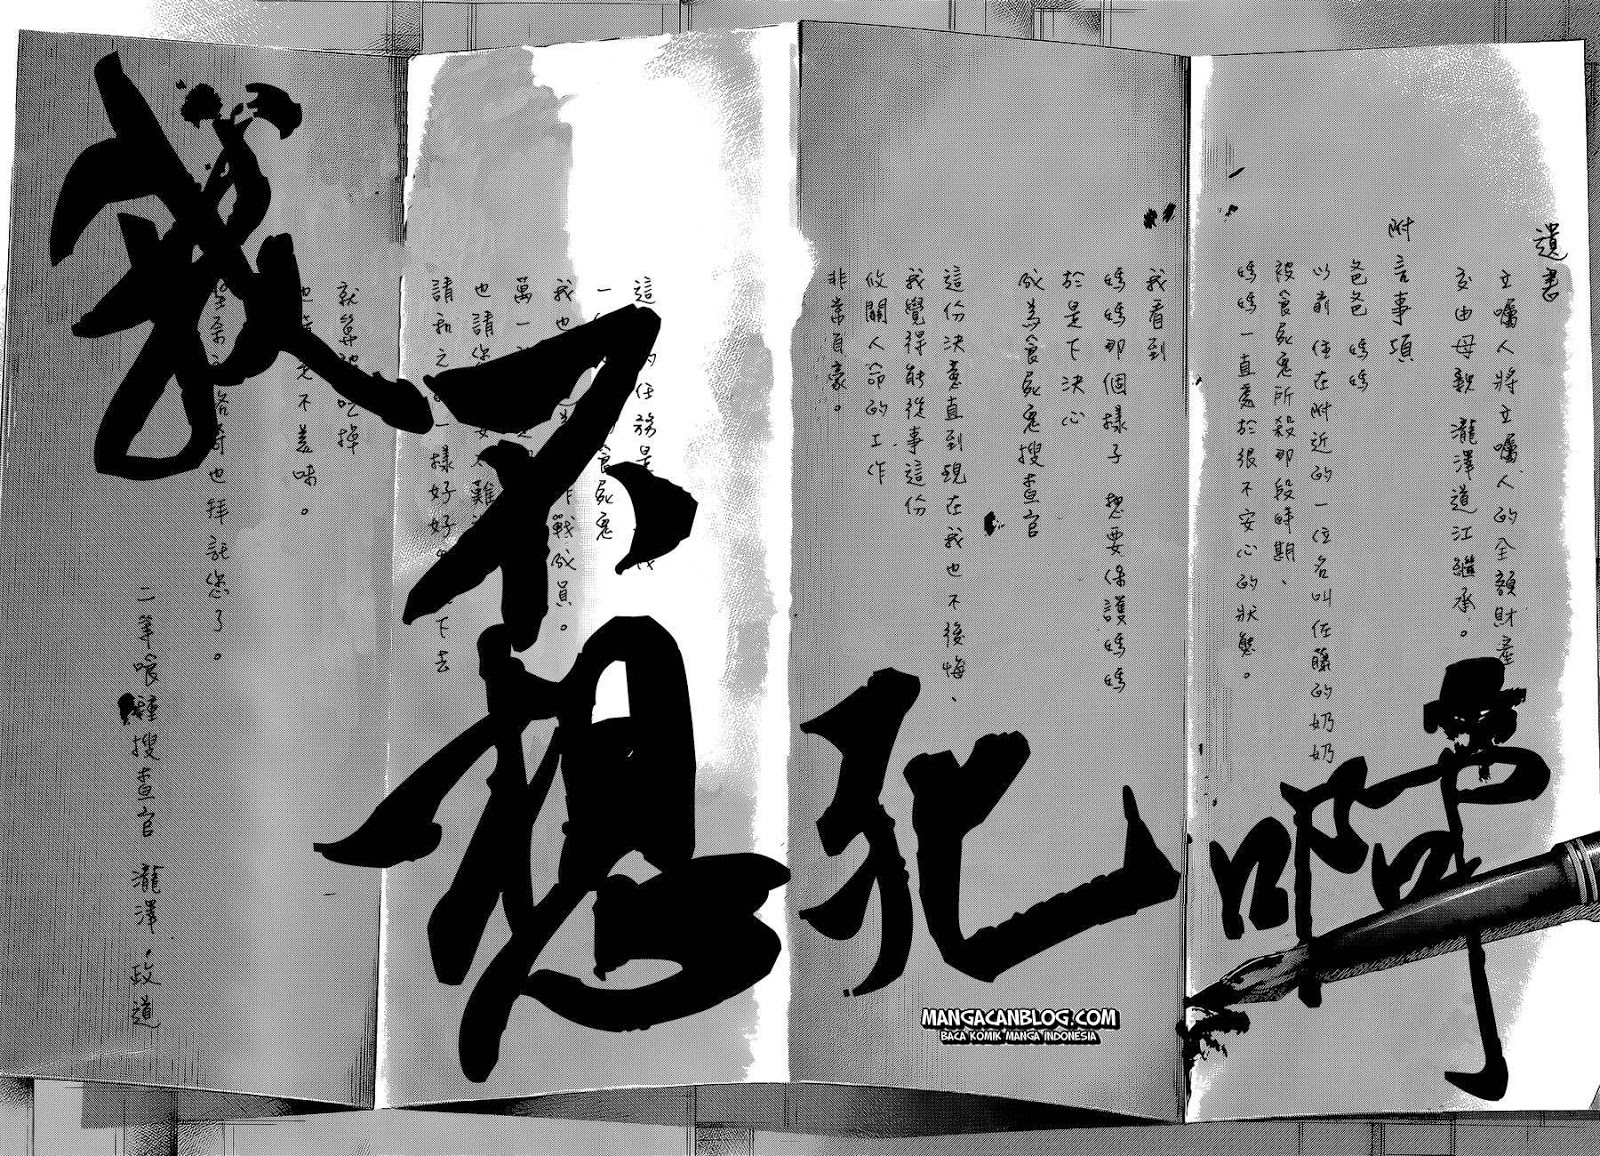 遺書
立囑人將立囑人的全額財產
交由母親 瀧澤道江繼承。
附言事項
爸爸 媽媽
以前住在附近的一位名叫佐藤的奶奶
被食屍鬼所殺那段時期、
媽媽一直處於很不安心的狀態。
我看到
媽媽那個樣子 想要保護媽媽
於是下決心
成為食屍鬼搜查官
這份決意直到現在我也不後悔、
我覺得能從事這份
攸關人命的工作
非常自豪。
這 的任務是
一 食屍鬼
我也 作戰成員。
萬一
也請您 難
請和之 一樣好好 下去
就算被吃掉
也 不美味。
也拜託您了。
二等喰種搜查官 瀧澤·政道
我不想死啊
MANGACANBLOG.COM
BACA KOMIK MANGA INDONESIA